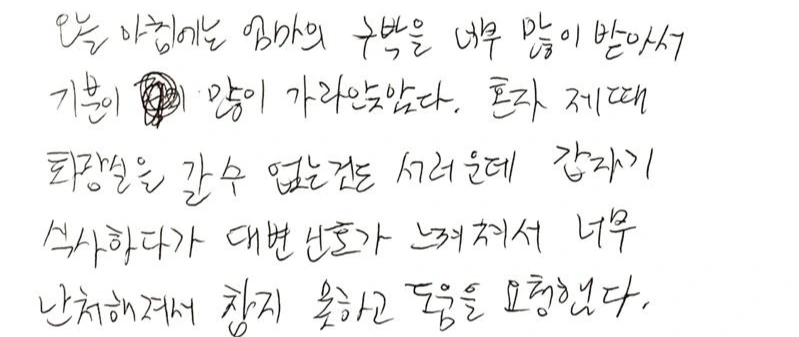 오늘 아침에는 엄마의 구박을 너무 많이 받아서
기분이 많이 가라앉았다. 혼자 제때
화장실을 갈 수 없는 것도 서러운데 갑자기
식사하다가 대변 신호가 느껴져서 너무
난처해져서 참지 못하고 도움을 요청했다.